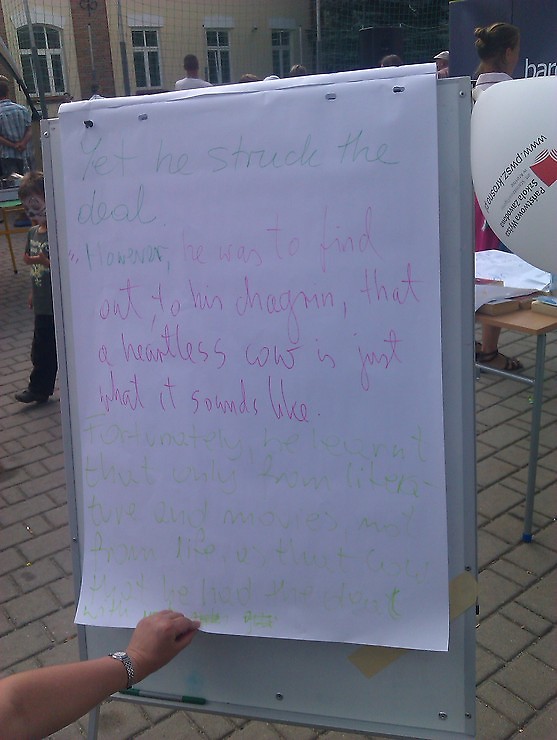 Yet he struck the
deal.
However, he was to find
out, to his chagrin, that
a heartless cow is just
what it sounds like.
Fortunately, he learnt
that only from litera-
ture and movies, not
from life, as that cow
that he had the deal
with
www.pwsz.krosno.pl
Państwowa Wyższa
Szkoła Zawodowa
bar